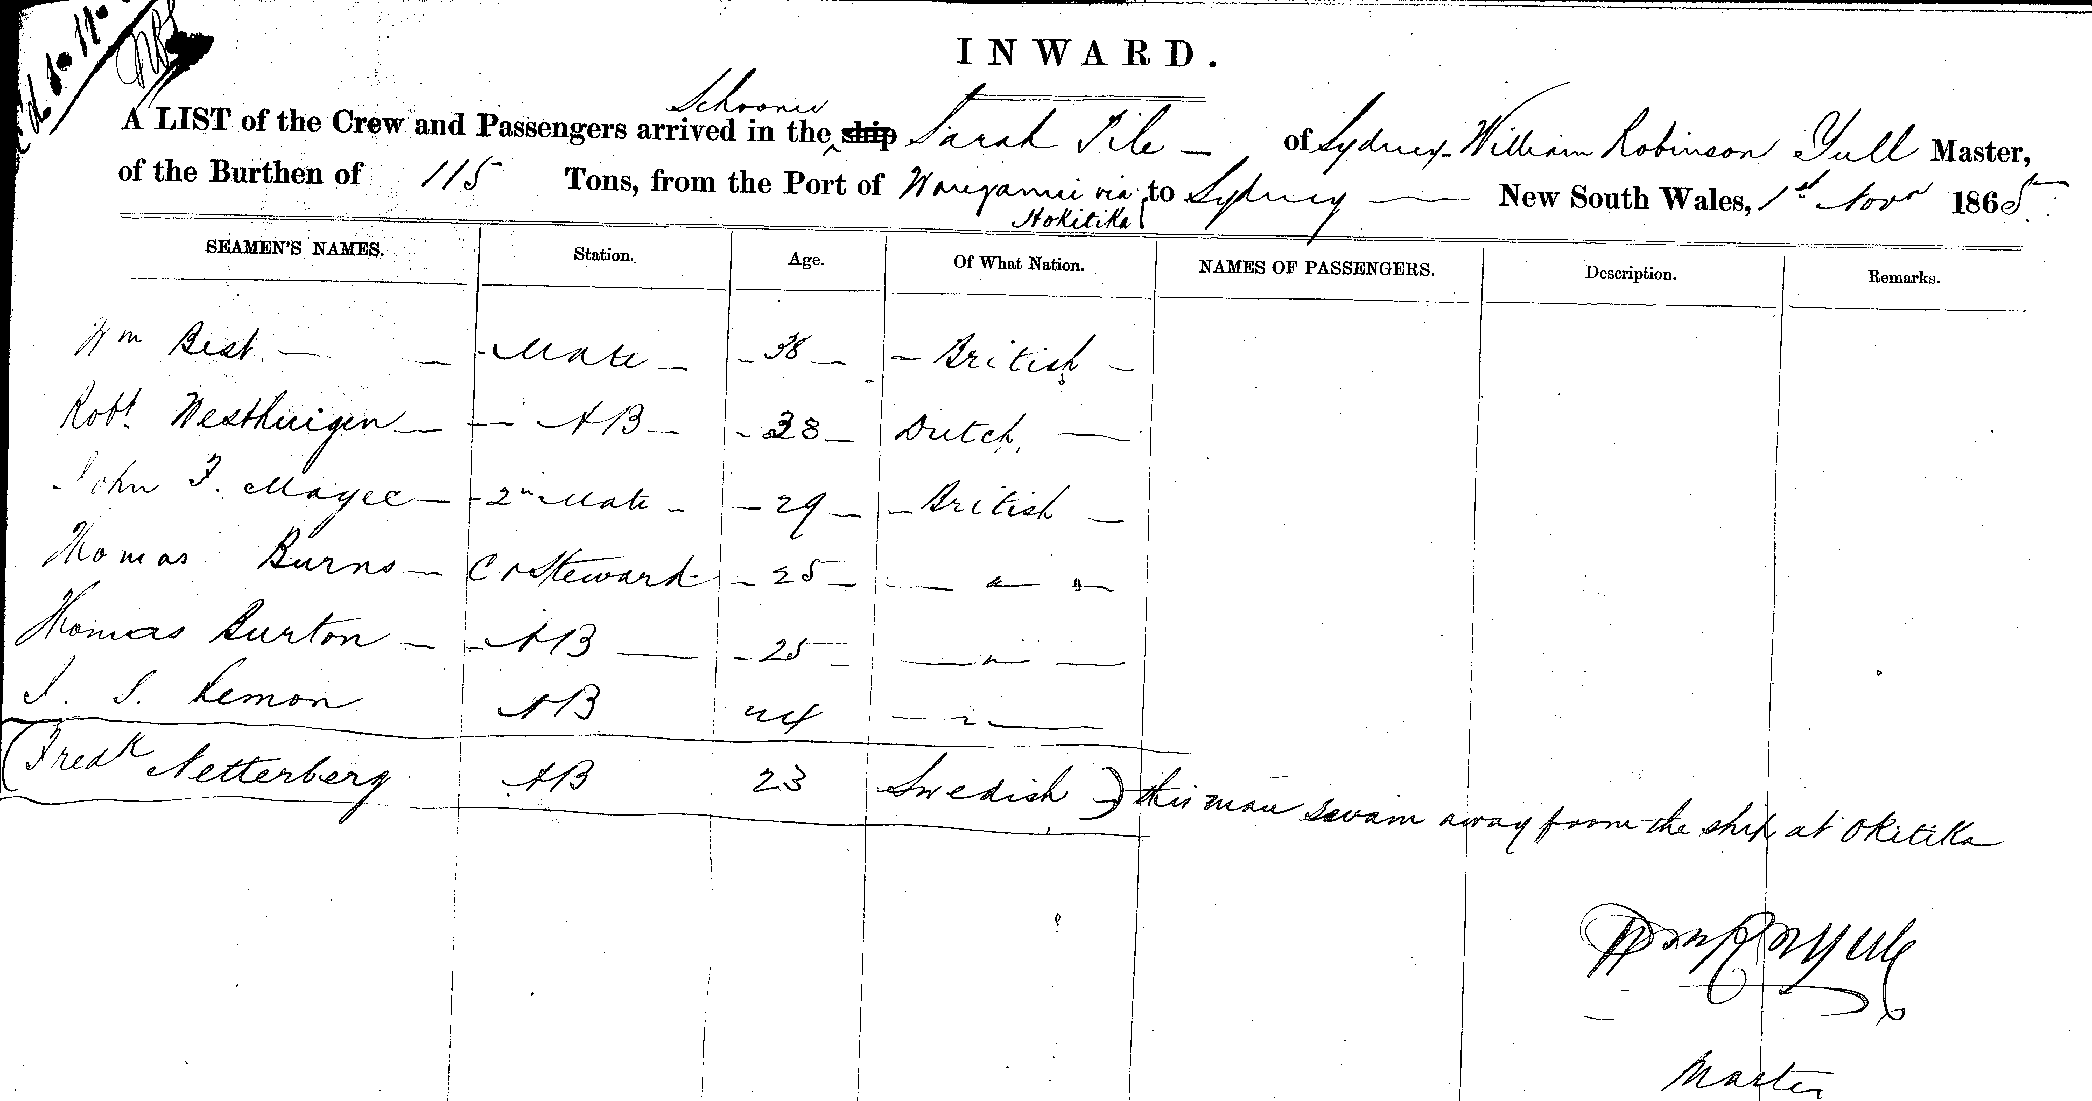 INWARD.
Schooner
A LIST of the Crew and Passengers arrived in the ship Sarah Pile — of Sydney - William Robinson Yull Master,
of the Burthen of 115 Tons, from the Port of Wanganui via to Sydney — New South Wales, 1st Novr 1865
Hokitika
SEAMEN'S NAMES. Station. Age. Of What Nation. NAMES OF PASSENGERS. Description. Remarks.
Wm Best — Mate — 38 — British —
Robt Westhuigen — AB — 38 — Dutch, —
John F. Magee — 2n Mate — 29 — British —
Thomas Burns — C & Steward — 25 — " "
Thomas Burton — AB — 25 — " —
J. S. Lemon AB 24 — " —
(Fredk Netterberg AB 23 Swedish ) this man swam away from the ship at Okitika
Wm R Yull
Master